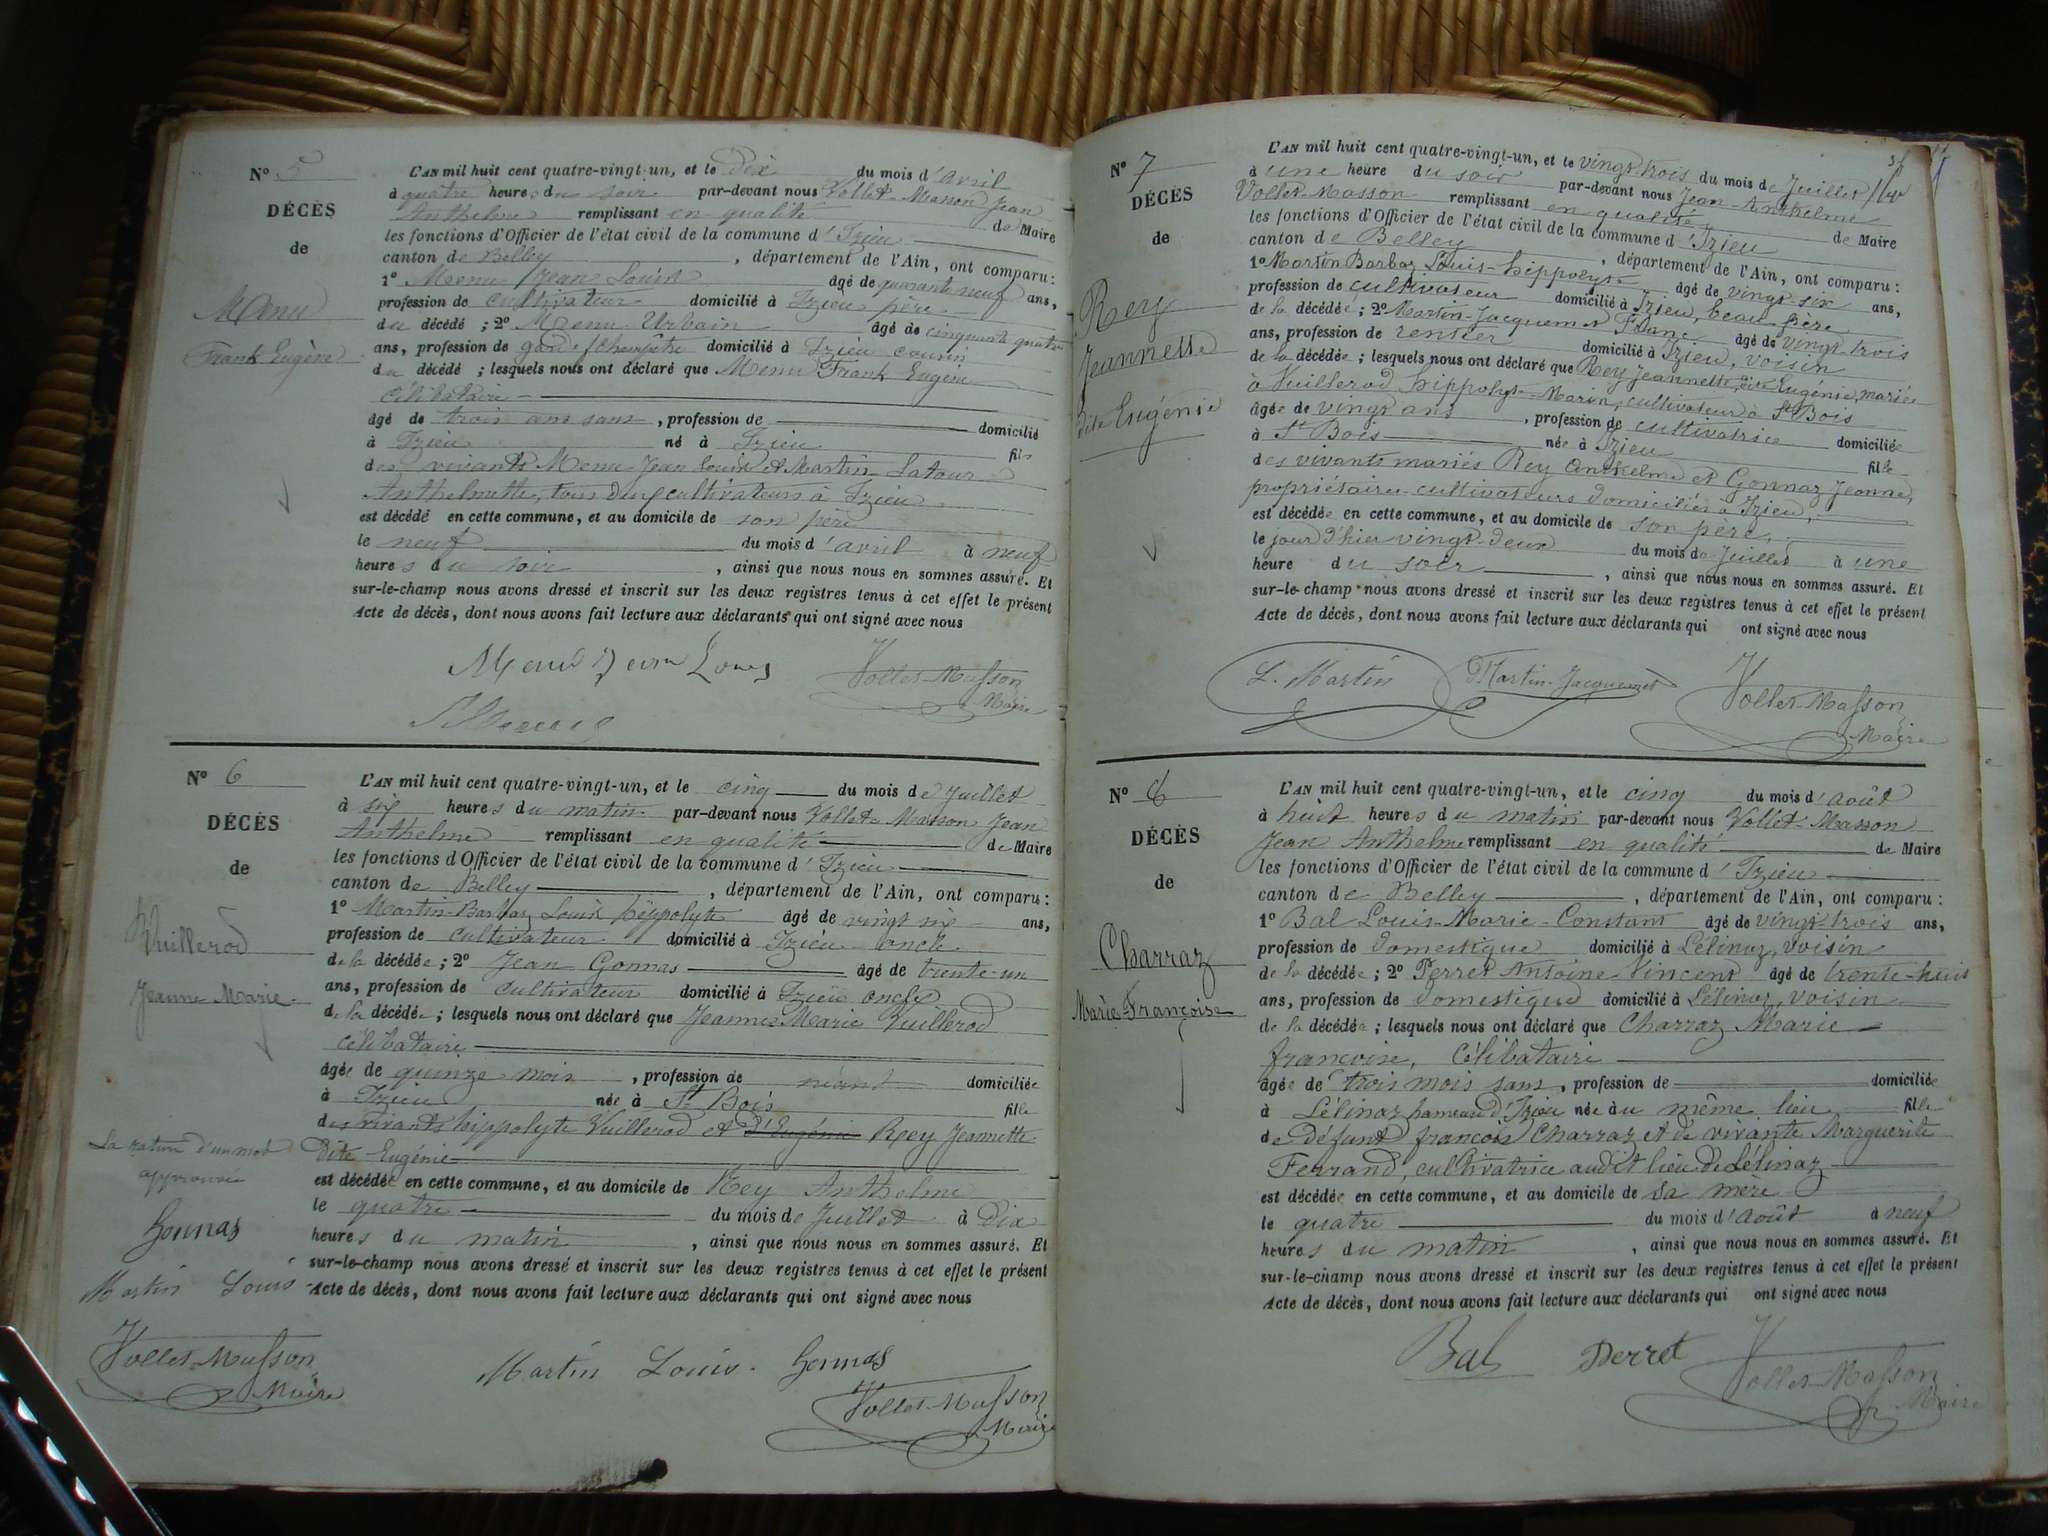 N° 5
DÉCÈS
de
Menu
Frank Eugène
L'AN mil huit cent quatre-vingt-un, et le dix du mois d'avril
à quatre heures du soir par-devant nous Vollet-Masson Jean
Anthelme remplissant en qualité de Maire
les fonctions d'Officier de l'état civil de la commune d'Izieu
canton de Belley, département de l'Ain, ont comparu :
1° Menu Jean Louis âgé de quarante neuf ans,
profession de cultivateur domicilié à Izieu père
du décédé ; 2° Menu Urbain âgé de cinquante quatre
ans, profession de garde champêtre domicilié à Izieu cousin
du décédé ; lesquels nous ont déclaré que Menu Frank Eugène
célibataire
âgé de trois ans sans, profession de domicilié
à Izieu né à Izieu fils
des vivants Menu Jean Louis et Martin Latour
Anthelmette, tous deux cultivateurs à Izieu
est décédé en cette commune, et au domicile de son père
le neuf du mois d'avril à neuf
heures du soir, ainsi que nous nous en sommes assuré. Et
sur-le-champ nous avons dressé et inscrit sur les deux registres tenus à cet effet le présent
Acte de décès, dont nous avons fait lecture aux déclarants qui ont signé avec nous
Menu Jean Louis
Vollet-Masson
Maire
N° 6
DÉCÈS
de
Vuillerod
Jeanne Marie
L'AN mil huit cent quatre-vingt-un, et le cinq du mois de Juillet
à six heures du matin par-devant nous Vollet-Masson Jean
Anthelme remplissant en qualité de Maire
les fonctions d'Officier de l'état civil de la commune d'Izieu
canton de Belley, département de l'Ain, ont comparu :
1° Martin-Barbaz Louis hippolyte âgé de vingt six ans,
profession de cultivateur domicilié à Izieu oncle
de la décédée ; 2° Jean Gonnas âgé de trente-un
ans, profession de cultivateur domicilié à Izieu oncle
de la décédée ; lesquels nous ont déclaré que Jeanne Marie Vuillerod
célibataire
âgée de quinze mois, profession de néant domiciliée
à Izieu née à St Bois fille
des vivants hippolyte Vuillerod et d'Eugénie Rey Jeannette
dite Eugénie
est décédée en cette commune, et au domicile de Rey Anthelme
le quatre du mois de Juillet à Dix
heures du matin, ainsi que nous nous en sommes assuré. Et
sur-le-champ nous avons dressé et inscrit sur les deux registres tenus à cet effet le présent
Acte de décès, dont nous avons fait lecture aux déclarants qui ont signé avec nous
La rature d'un mot
approuvée
Gonnas
Martin Louis
Vollet-Masson
Maire
Martin Louis Gonnas
Vollet-Masson
Maire
N° 7
DÉCÈS
de
Rey
Jeannette
dite Eugénie
L'AN mil huit cent quatre-vingt-un, et le vingt-trois du mois de Juillet
à une heure du soir par-devant nous Jean-Anthelme
Vollet-Masson remplissant en qualité de Maire
les fonctions d'Officier de l'état civil de la commune d'Izieu
canton de Belley, département de l'Ain, ont comparu :
1° Martin Barbaz Louis-hippolyte âgé de vingt-six ans,
profession de cultivateur domicilié à Izieu, beau frère
de la décédée ; 2° Martin-Jacquemet âgé de vingt-trois
ans, profession de rentier domicilié à Izieu, voisin
de la décédée ; lesquels nous ont déclaré que Rey Jeannette, dite Eugénie, mariée
à Vuillerod hippolyte-Marin, cultivateur à St Bois
âgée de vingt ans, profession de cultivatrice domiciliée
à St Bois née à Izieu fille
des vivants mariés Rey Anthelme et Gonnaz Jeanne,
propriétaires-cultivateurs domiciliés à Izieu,
est décédée en cette commune, et au domicile de son père,
le jour d'hier vingt-deux du mois de Juillet à une
heure du soir, ainsi que nous nous en sommes assuré. Et
sur-le-champ nous avons dressé et inscrit sur les deux registres tenus à cet effet le présent
Acte de décès, dont nous avons fait lecture aux déclarants qui ont signé avec nous
L. Martin Martin-Jacquemet Vollet-Masson
Maire
N° 8
DÉCÈS
de
Charraz
Marie Françoise
L'AN mil huit cent quatre-vingt-un, et le cinq du mois d'août
à huit heures du matin par-devant nous Vollet-Masson
Jean Anthelme remplissant en qualité de Maire
les fonctions d'Officier de l'état civil de la commune d'Izieu
canton de Belley, département de l'Ain, ont comparu :
1° Bal Louis-Marie-Constant âgé de vingt-trois ans,
profession de domestique domicilié à Lélinaz, voisin
de la décédée ; 2° Perret Antoine Vincent âgé de trente-huit
ans, profession de domestique domicilié à Lélinaz, voisin
de la décédée ; lesquels nous ont déclaré que Charraz Marie
françoise, célibataire
âgée de trois mois sans, profession de domiciliée
à Lélinaz hameau d'Izieu née au même lieu fille
de défunt françois Charraz et de vivante Marguerite
Ferrand, cultivatrice audit lieu de Lélinaz
est décédée en cette commune, et au domicile de sa mère
le quatre du mois d'août à neuf
heures du matin, ainsi que nous nous en sommes assuré. Et
sur-le-champ nous avons dressé et inscrit sur les deux registres tenus à cet effet le présent
Acte de décès, dont nous avons fait lecture aux déclarants qui ont signé avec nous
Bal Perret Vollet-Masson
Maire